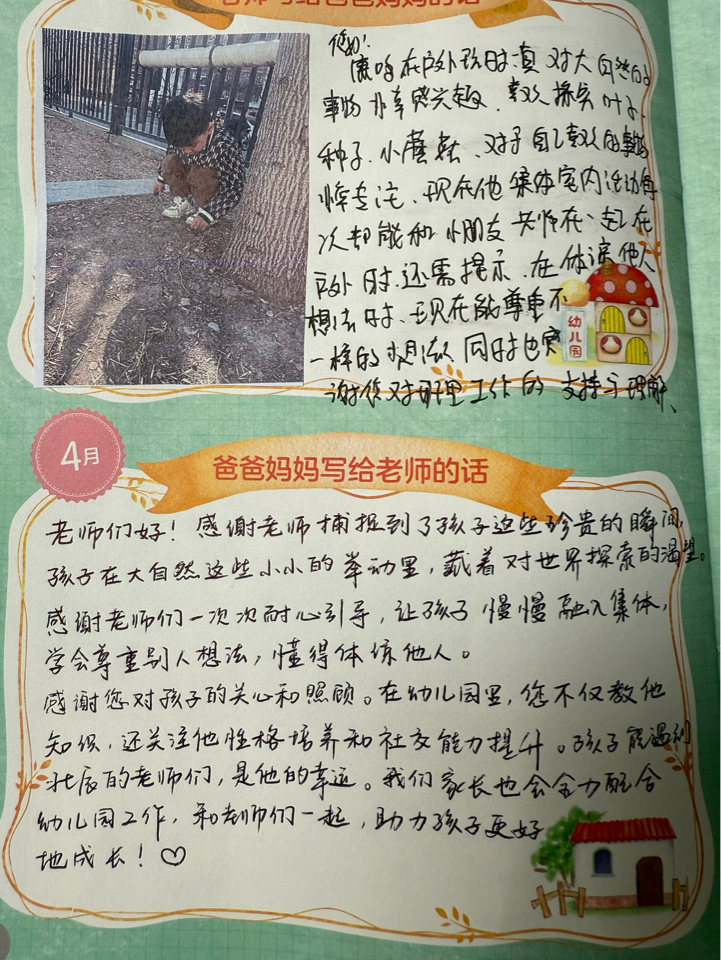 老师写给爸爸妈妈的话
您好!
在户外玩时真对大自然的
事物非常感兴趣、喜欢探索叶子、
种子、小蘑菇、对于自己喜欢的事物
非常专注、现在他集体室内活动每
次都能和小朋友老师在一起在
户外时还需提示、在体谅他人
想法时、现在能尊重不
一样的想法同时也感
谢您对班里工作的支持与理解、
幼儿园
4月
爸爸妈妈写给老师的话
老师们好!感谢老师捕捉到了孩子这些珍贵的瞬间,
孩子在大自然这些小小的举动里,藏着对世界探索的渴望。
感谢老师们一次次耐心引导,让孩子慢慢融入集体,
学会尊重别人想法,懂得体谅他人。
感谢您对孩子的关心和照顾。在幼儿园里,您不仅教他
知识,还关注他性格培养和社交能力提升。孩子能遇到
北辰的老师们,是他的幸运。我们家长也会全力配合
幼儿园工作,和老师们一起,助力孩子更好
地成长!♡